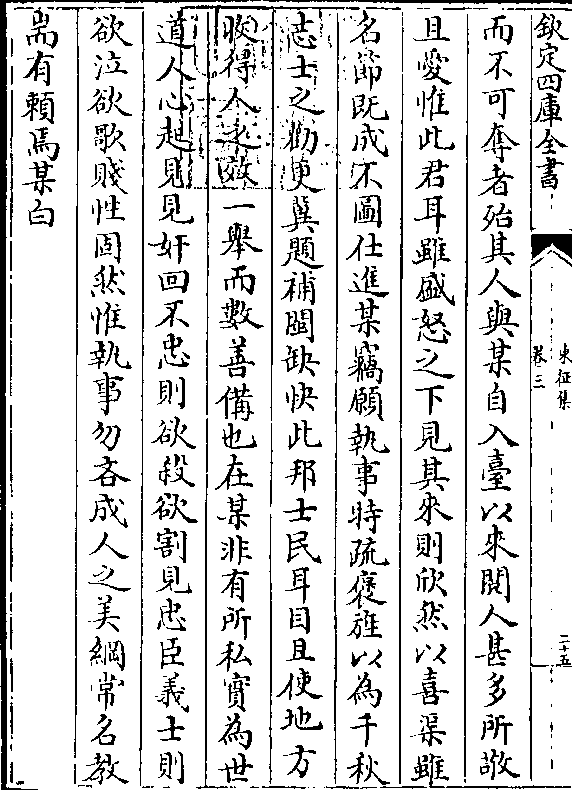 欽定四庫全書
東征集
卷三
二十五
而不可奪者殆其人與某自入臺以來閱人甚多所敬
且愛惟此君耳雖盛怒之下見其來則欣然以喜渠雖
名節既成不圖仕進某竊願執事時疏褒旌以為千秋
志士之勸更冀題補閩缺快此邦士民耳目且使地方
收得人之效一舉而數善備也在某非有所私實為世
道人心起見見奸回不忠則欲殺欲割見忠臣義士則
欲泣欲歌賤性固然惟執事勿吝成人之美綱常名教
耑有賴焉某白